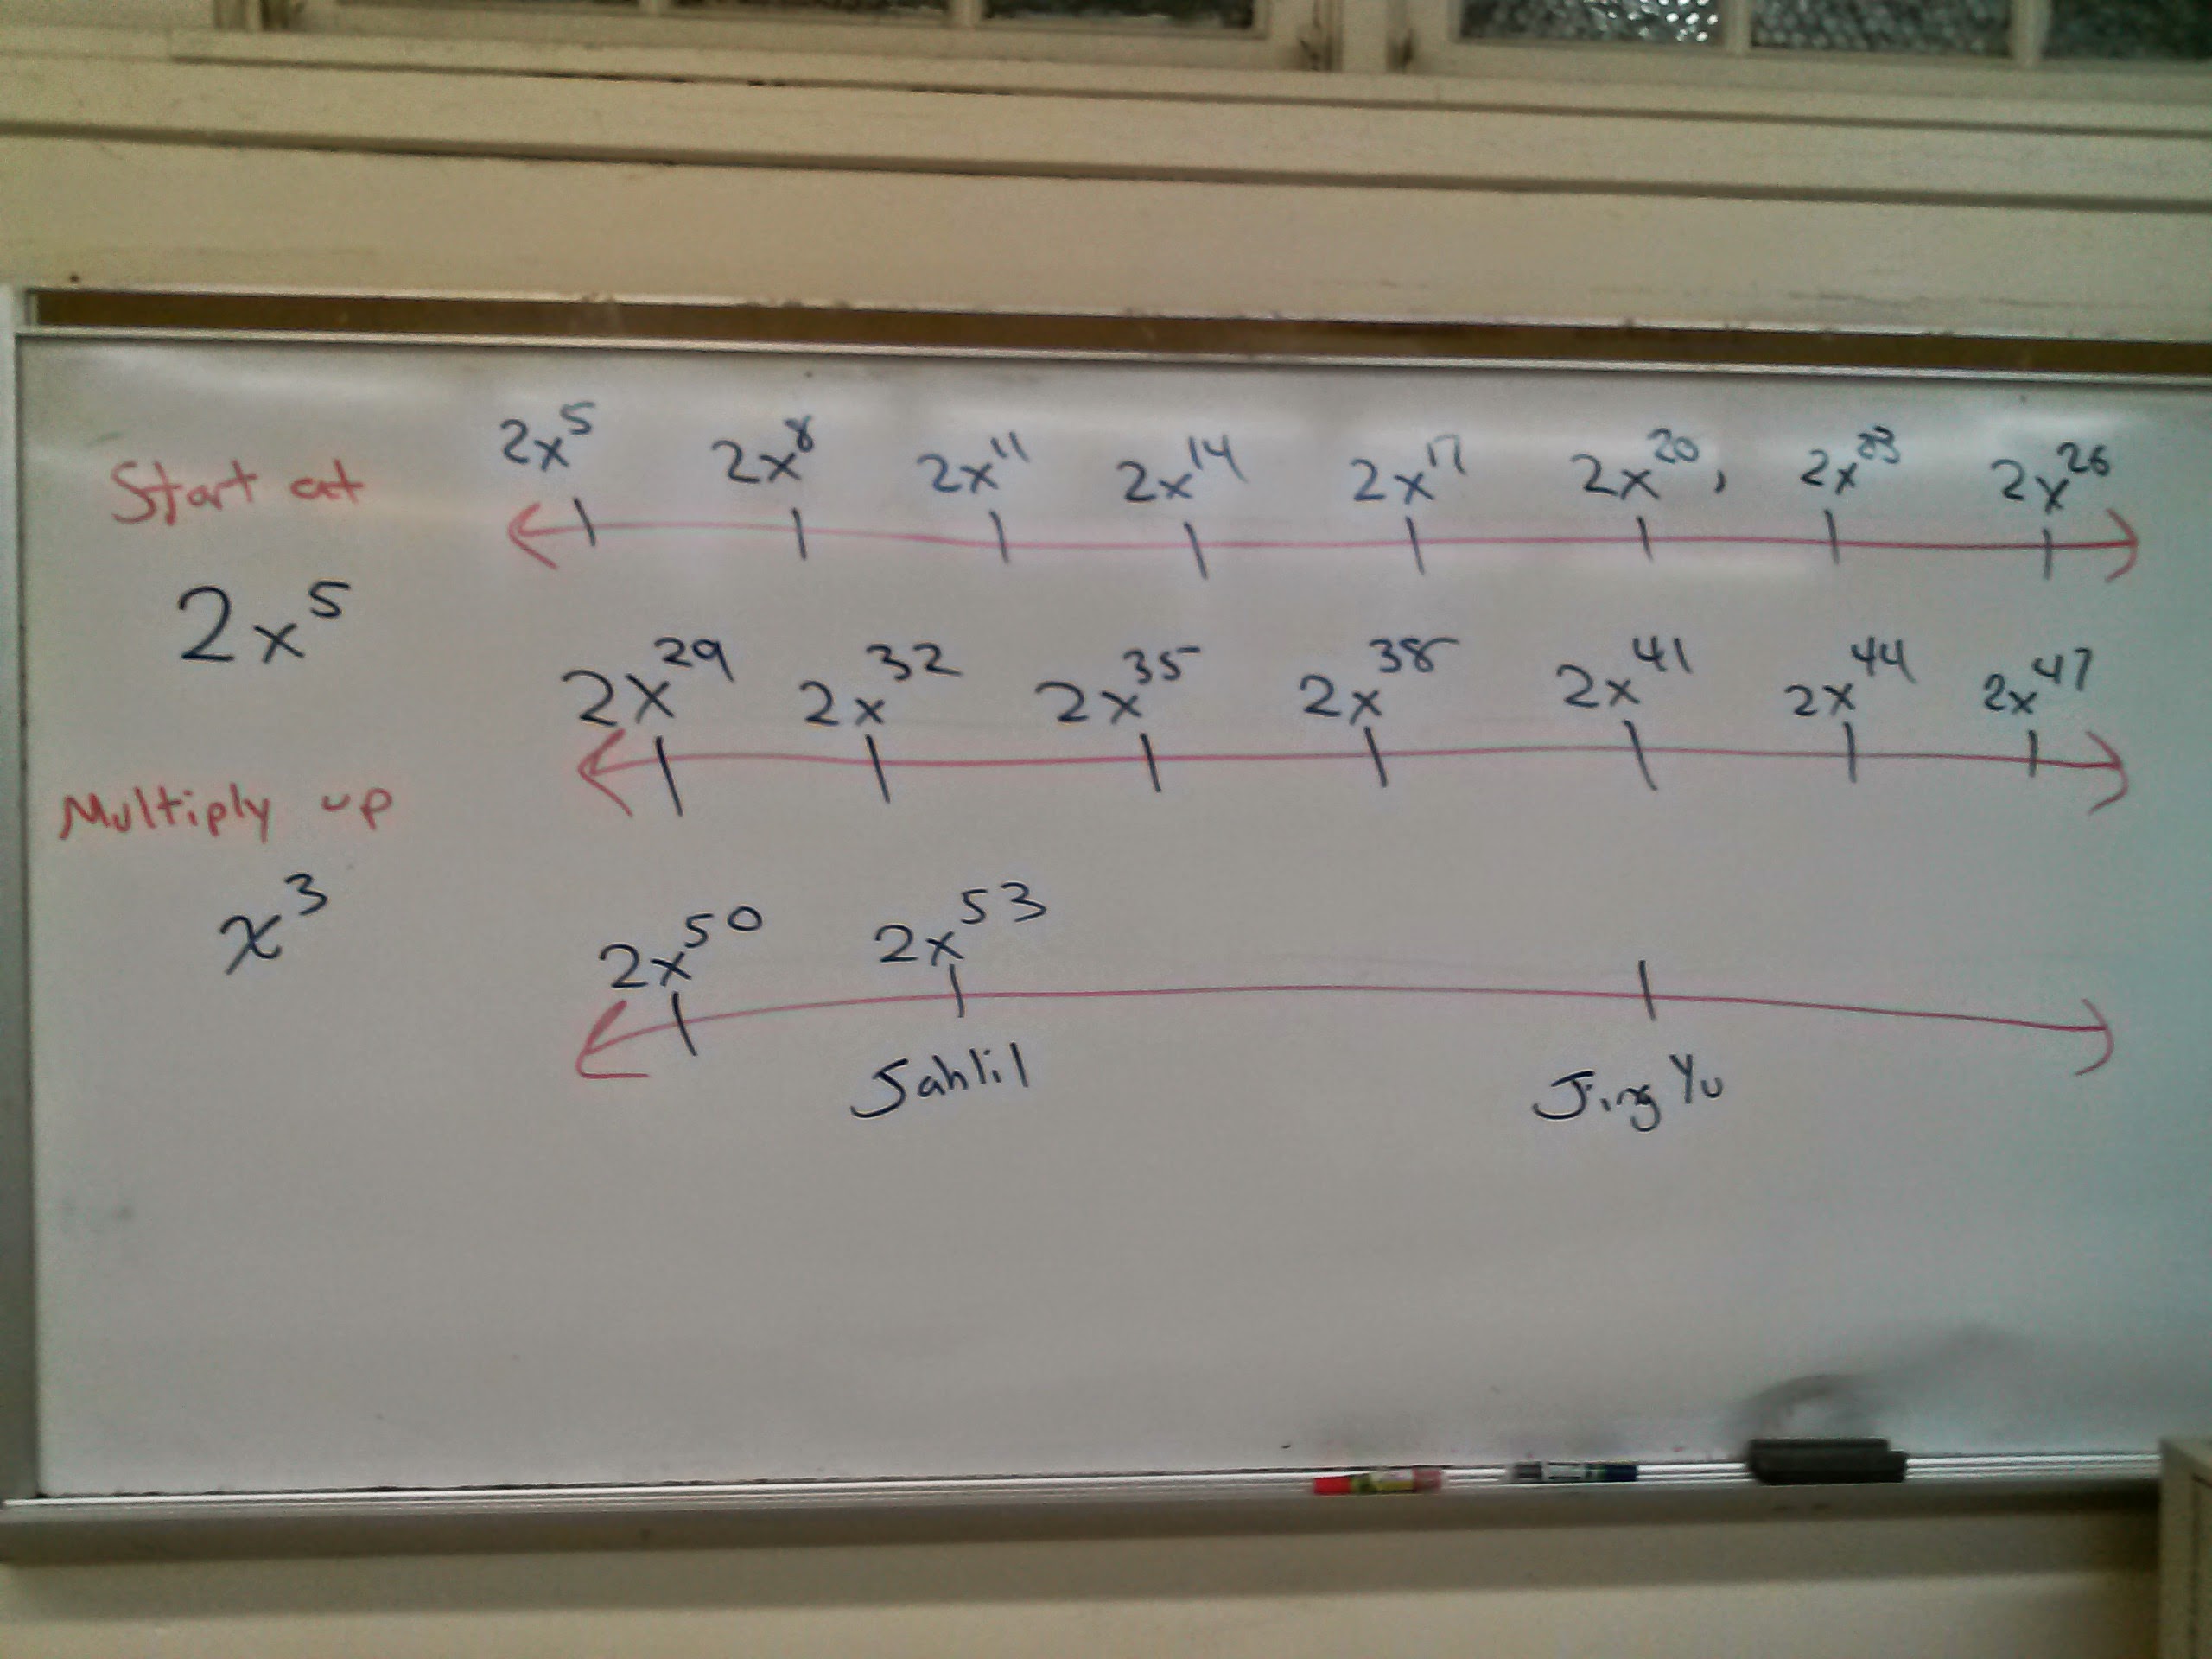 Start at
2x⁵
Multiply up
x³
2x⁵ 2x⁸ 2x¹¹ 2x¹⁴ 2x¹⁷ 2x²⁰, 2x²³ 2x²⁶
2x²⁹ 2x³² 2x³⁵ 2x³⁸ 2x⁴¹ 2x⁴⁴ 2x⁴⁷
2x⁵⁰ 2x⁵³
Sahlil Jing Yu